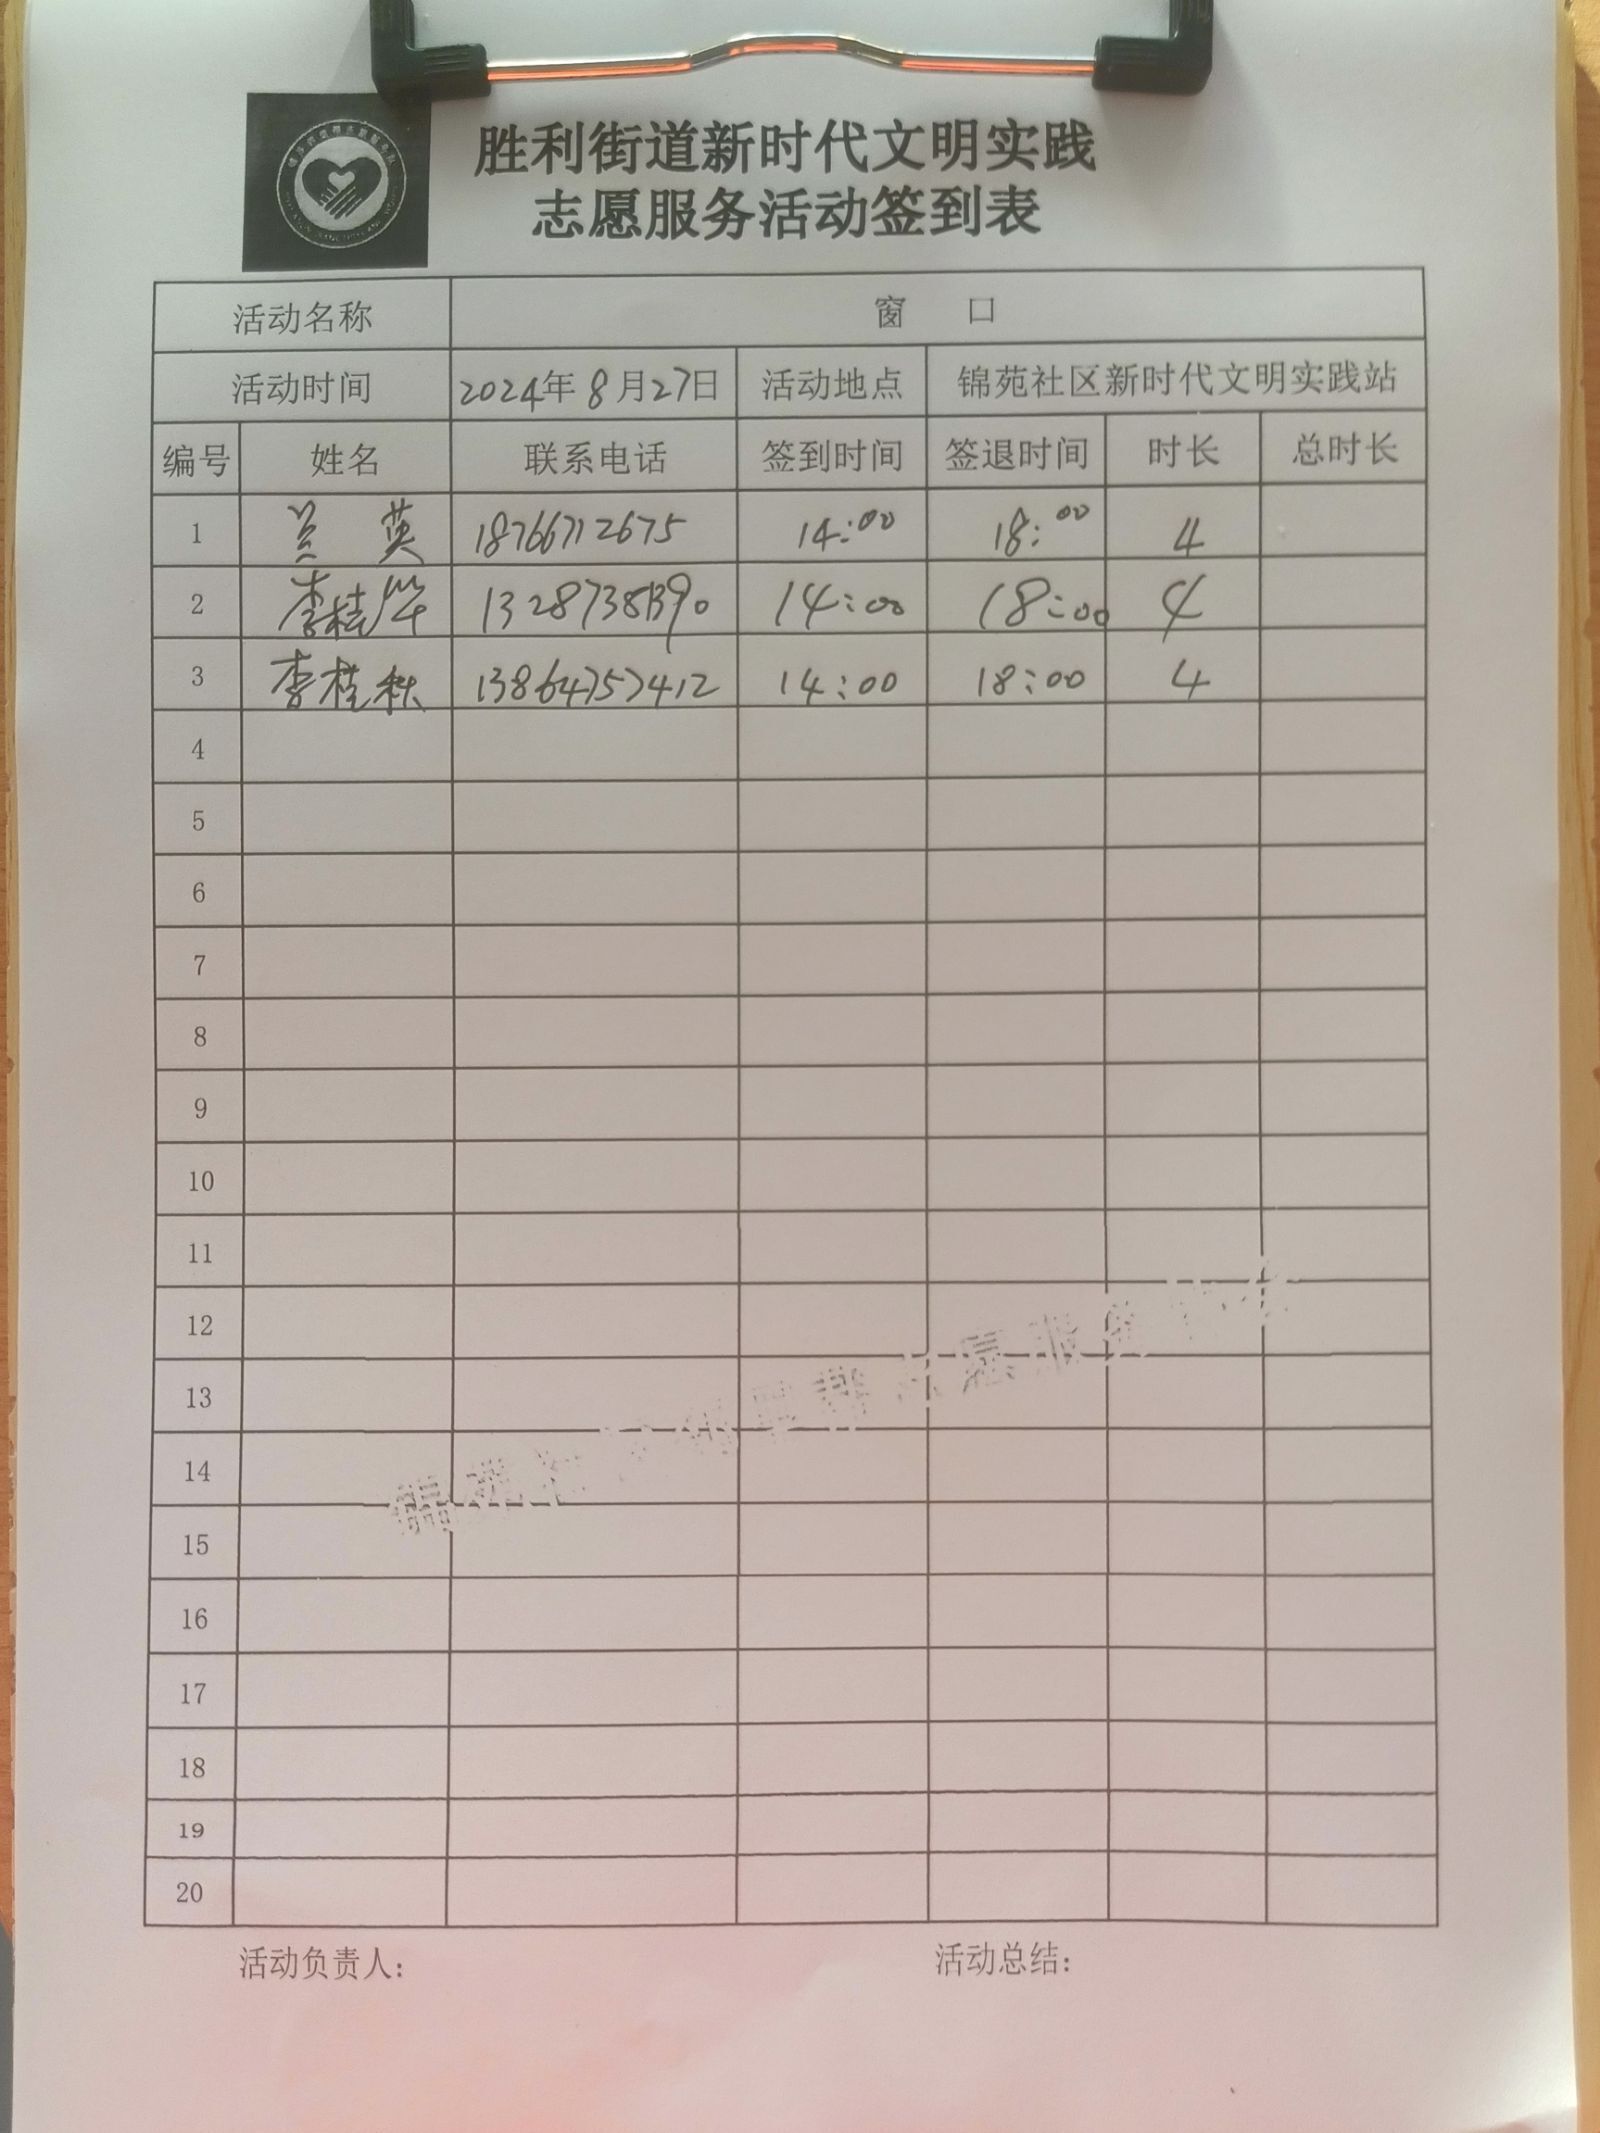 胜利街道新时代文明实践
志愿服务活动签到表
活动名称 窗 口
活动时间 2024年8月27日 活动地点 锦苑社区新时代文明实践站
编号 姓名 联系电话 签到时间 签退时间 时长 总时长
1 兰英 18766712675 14:00 18:00 4
2 李桂华 14:00 18:00 4
3 李桂秋 13864757412 14:00 18:00 4
4
5
6
7
8
9
10
11
12
13
14
15
16
17
18
19
20
活动负责人: 活动总结: